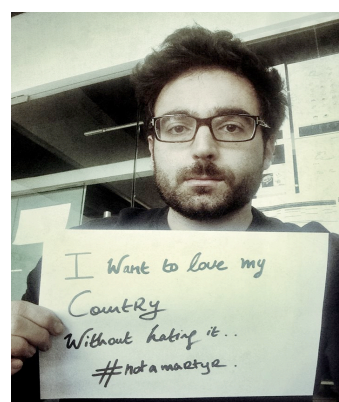 I want to love my
Country
Without hating it..
#notamartyr.